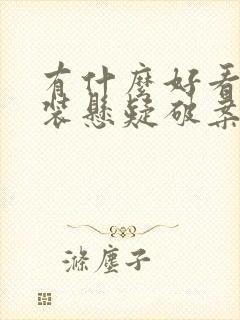 有什麼好看
裝懸疑破案
滌塵子